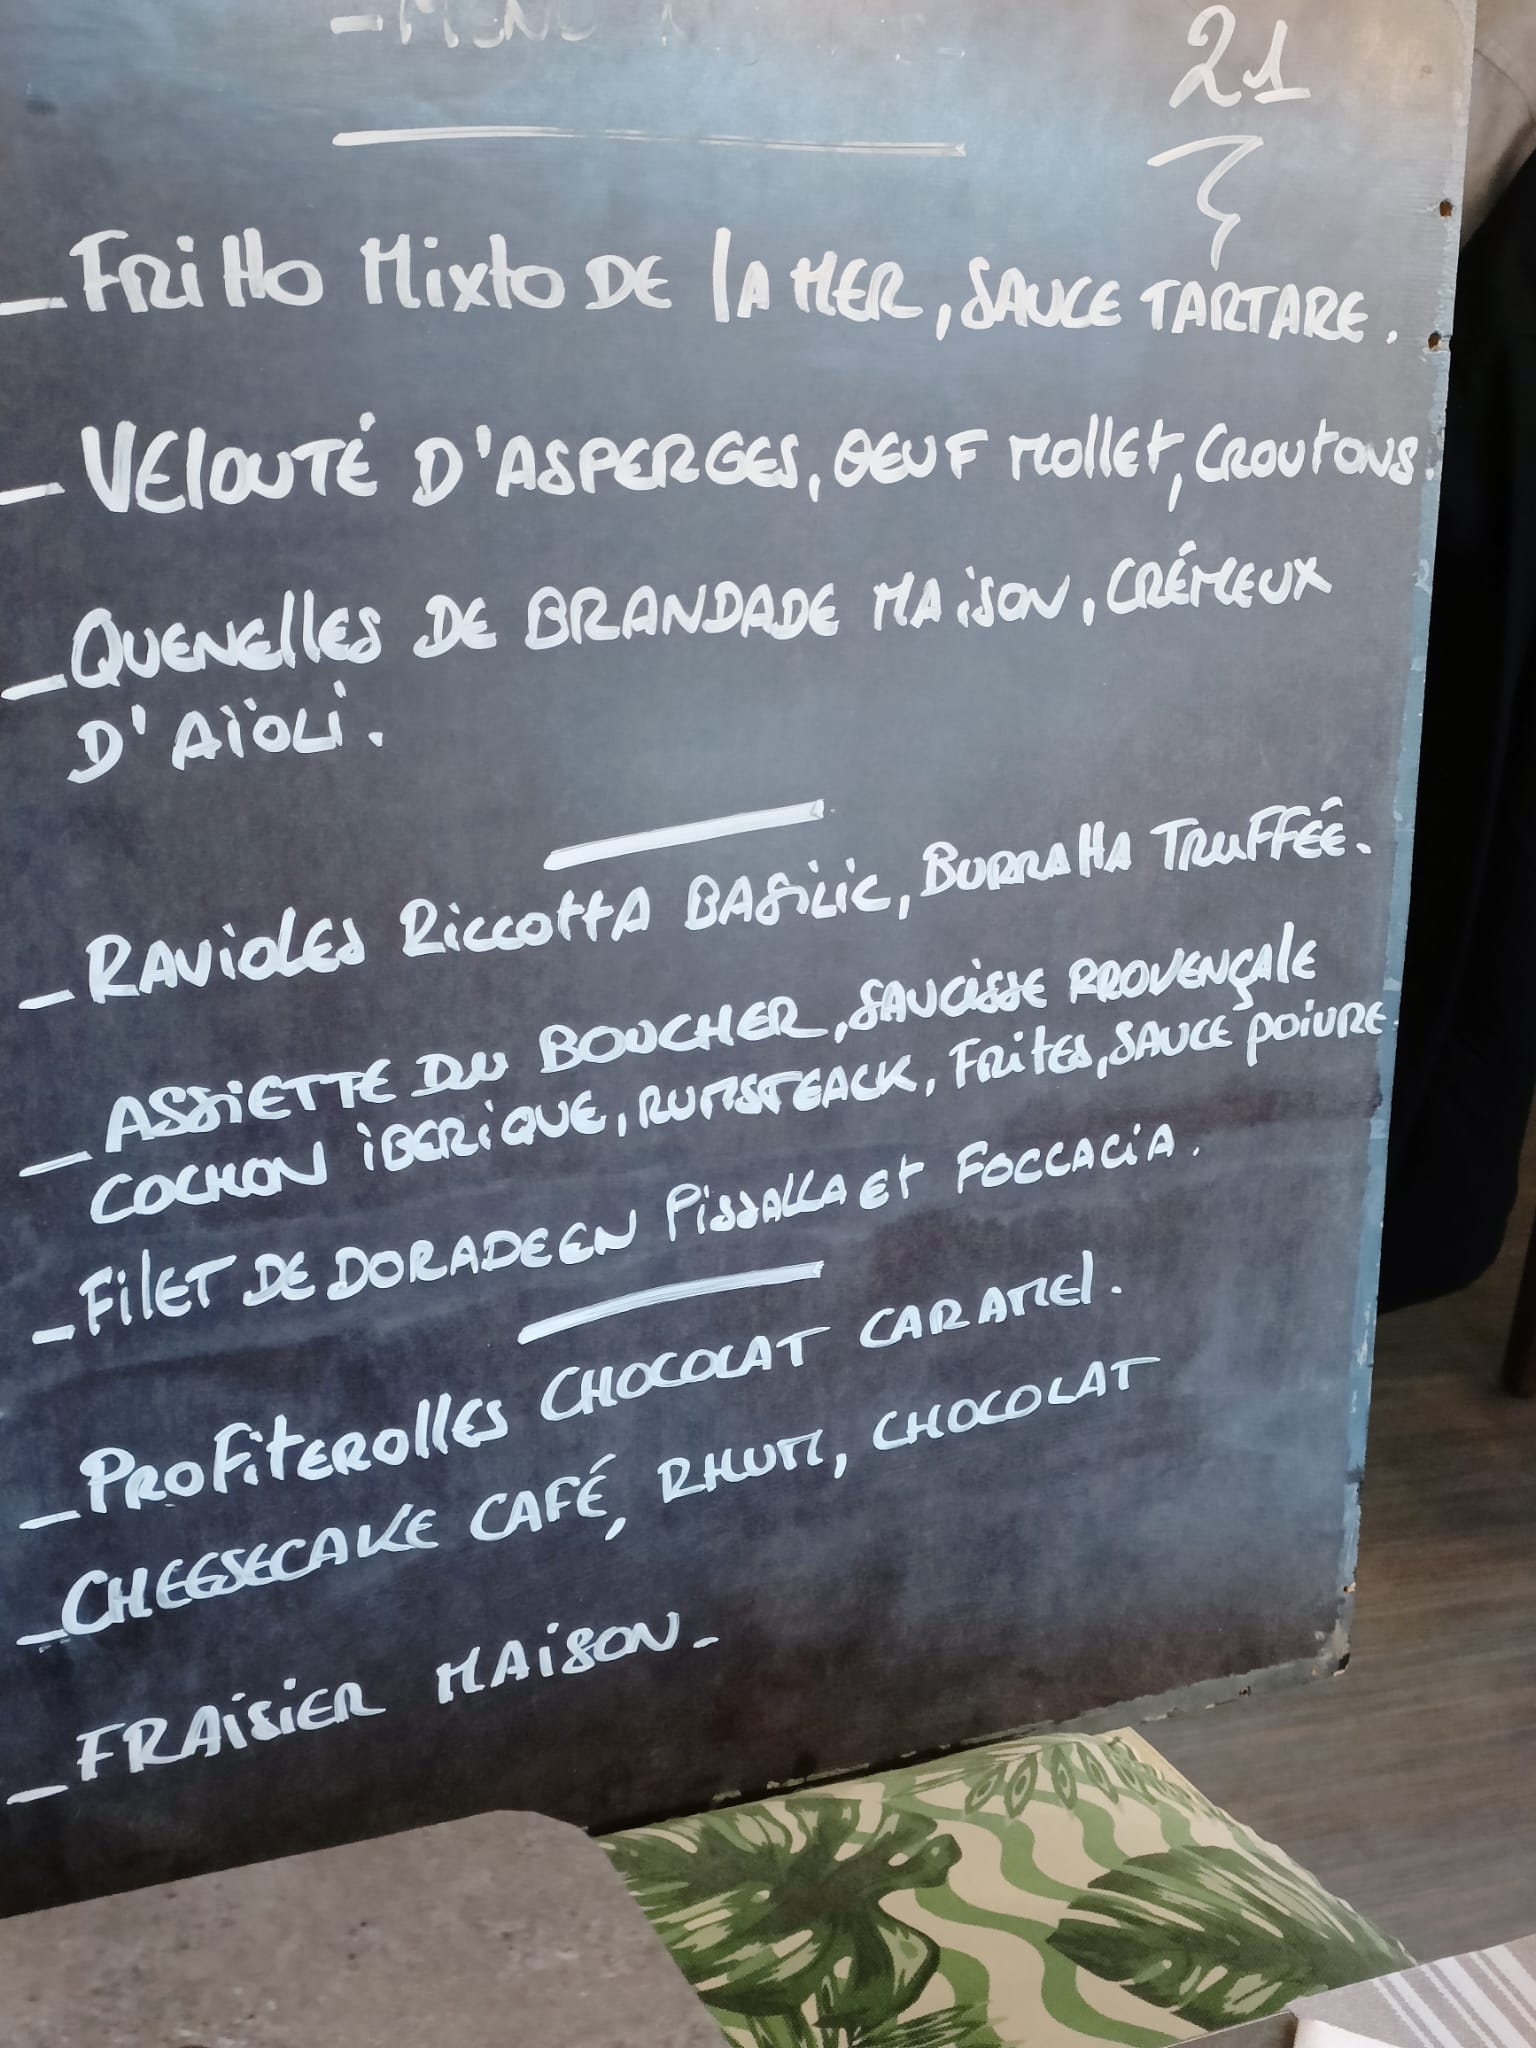 - MENU
21
- FRitto Mixto DE lA MER, SAUCE TARTARE.
- VEloUTÉ D'ASPERGES, OEUF Mollet, CROUtONS.
- QUENElles DE BRANDADE MAiSON, CRÉMEUX
D'AÏOLi.
- RAVioLES RiccottA BASiLiC, BURRAttA TRUFFÉE.
- ASSiETTE DU BOUCHER, SAUCiSSE PROVENÇAlE
COCHON iBERiQUE, RUMSTEACK, FRitES, SAUCE POiVRE
- FilET DE DORADE EN PiSSALLAEt FOCCACiA.
- PRoFitERolles CHOCOLAT CARAMEl.
- CHEESECAKE CAFÉ, RHUM, CHOCOLAT
- FRAiSiER MAiSON-